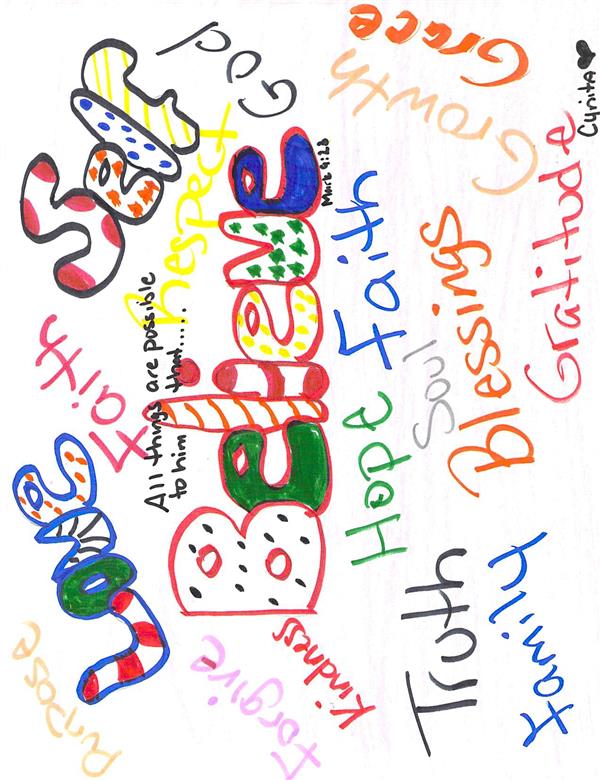 Purpose
Love
Faith
Self
Respect
God
All things are possible
to him that.....
Believe
Mark 9:28
Forgive
Kindness
Hope
Faith
Growth
Grace
Truth
Soul
Blessings
Family
Gratitude
Cynita ♥